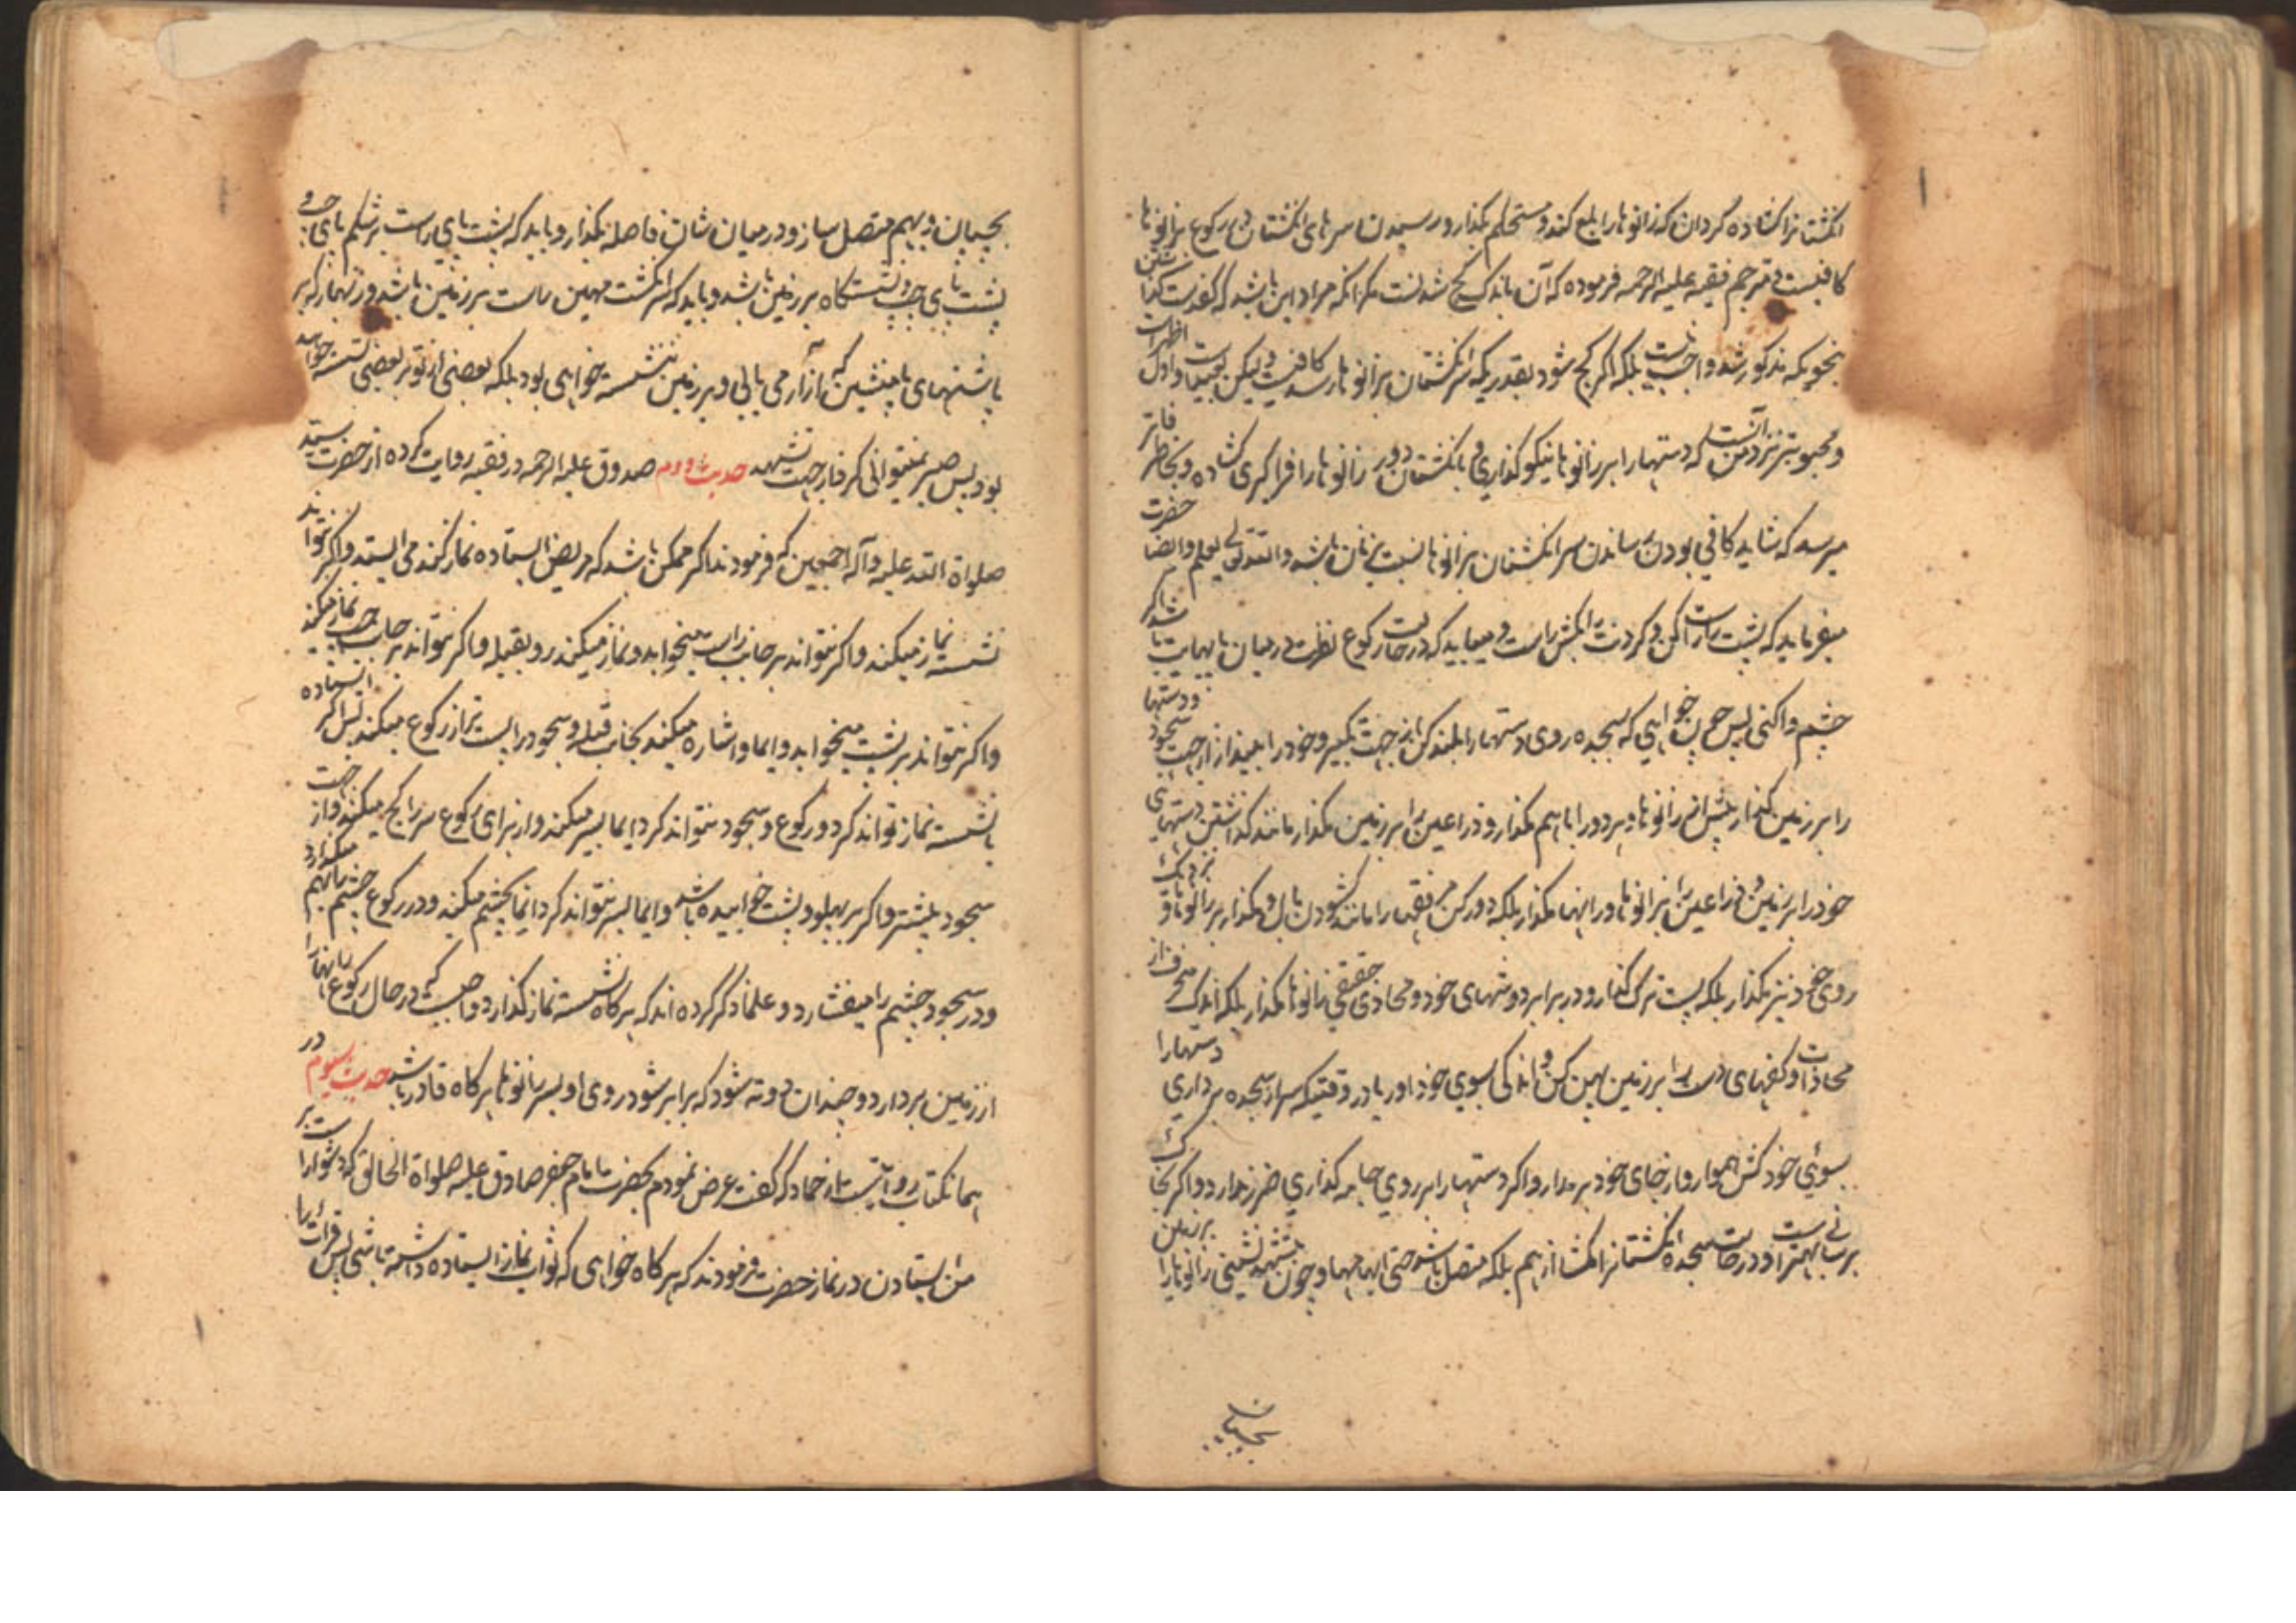 انکشتانرا کشاده گردان که زانوها را بلع کند و مستحکم بکذار و رسیدن سرهای انکشتان در رکوع بزانوها
کافیست و مترجم فقیه علیه الرحمه فرموده که آن باندک کج شدنست مکر آنکه مراد این باشد که کفدست کذاشتن
بنحویکه مذکور شد واجب نیست بلکه اگر کج شود بقدریکه سر انکشتان بزانوها رسد کافیست و لیکن اول اظهر است
و محبوبتر نزد من آنست که دستها را بر زانوها نیکو کذاری و بانکشتان دور زانوها را فراکیری کشاده و بخاطر فاتر
میرسد که شاید کافی بودن رساندن سر انکشتان بزانوها نسبت بزنان باشد والله تعالی یعلم و ایضا حضرت
میفرماید که پشت راست کن و کردنت را بکش راست و میباید که در حالت رکوع نظرت در میان پاهایت باشد اگر
چشم واکنی پس چون خواهی که بسجده روی دستها را بلند کن از جهت تکبیر و خود را بینداز از جهت سجود و دستها
را بر زمین کذار پیش از زانوها و هر دو را باهم بکذار و ذراعین را بر زمین مکذار مانند کذاشتن دستهای
خود را بر زمین و ذراعین را بزانوها و رانها مکذار بلکه دور کن مرفقها را مانند کشودن بال و مکذار بر زانوها و نزدیک
روی خود نیز مکذار بلکه پست ترک کذار و در برابر دوشهای خود و محاذی حقیقی زانوها مکذار بلکه اندک منحرف از
محاذات و کفهای دست را بر زمین پهن کن و اندکی بسوی خود آور یا در وقتیکه سر از سجده برداری دستها را
بسوئی خود کش هموار و از جای خود برمدار و اکر دستها را بر روی جامه کذاری ضرر ندارد و اکر بخاک
برسانی بهتر است و در حالت سجده انکشتانرا مکشا از هم بلکه متصل باشد حتی ابهامها و چون بتشهد نشینی زانوها را بر زمین
بچسبان
بچسبان و بهم متصل ساز و در میان شان فاصله مکذار و باید که پشت پای راست بر شکم پای چپ و
پشت پای چپ و نشستگاه بر زمین باشد و باید که سر انکشت مهین راست بر زمین باشد و زنهار که بر
پاشنهای پا ننشین که از آن آزار می یابی و بر زمین ننشسته خواهی بود بلکه بعضی از تو بر بعضی نشسته خواهد
بود پس صبر نمیتوانی کرد از جهت تشهد حدیث دوم صدوق علیه الرحمه در فقیه روایت کرده از حضرت سید
صلواة الله علیه و آله اجمعین که فرمودند اکر ممکن باشد که مریض ایستاده نماز کند می ایستد و اکر نتواند
نشسته نماز میکند و اکر نتواند بر جانب راست میخوابد و نماز میکند رو بقبله و اکر نتواند بر جانب چپ نماز میکند
و اکر نتواند بر پشت میخوابد و ایما و اشاره میکند بجانب قبله و سجود را پست تر از رکوع میکند پس اکر ایستاده
یا نشسته نماز تواند کرد و رکوع و سجود نتواند کرد ایما بسر میکند و از برای رکوع سر را کج میکند و از جهت
سجود بیشتر و اکر بر پهلو و پشت خوابیده باشد و ایما بسر نتواند کرد ایما بچشم میکند و در رکوع چشم را بر هم میکذارد
و در سجود چشم را میفشارد و علما ذکر کرده اند که هرکاه نشسته نماز کذارد واجبست که در حال رکوع رانها را
از زمین بردارد و چندان دوته شود که برابر شود روی او بسر زانوها هرکاه قادر باشد حدیث سیوم در
همان کتاب روایتست از حماد که گفت عرض نمودم بحضرت امام جعفر صادق علیه صلواة الخالق که دشوار است بر
من ایستادن در نماز حضرت فرمودند که هرکاه خواهی که ثواب نماز ایستاده داشته باشی پس قرائت را